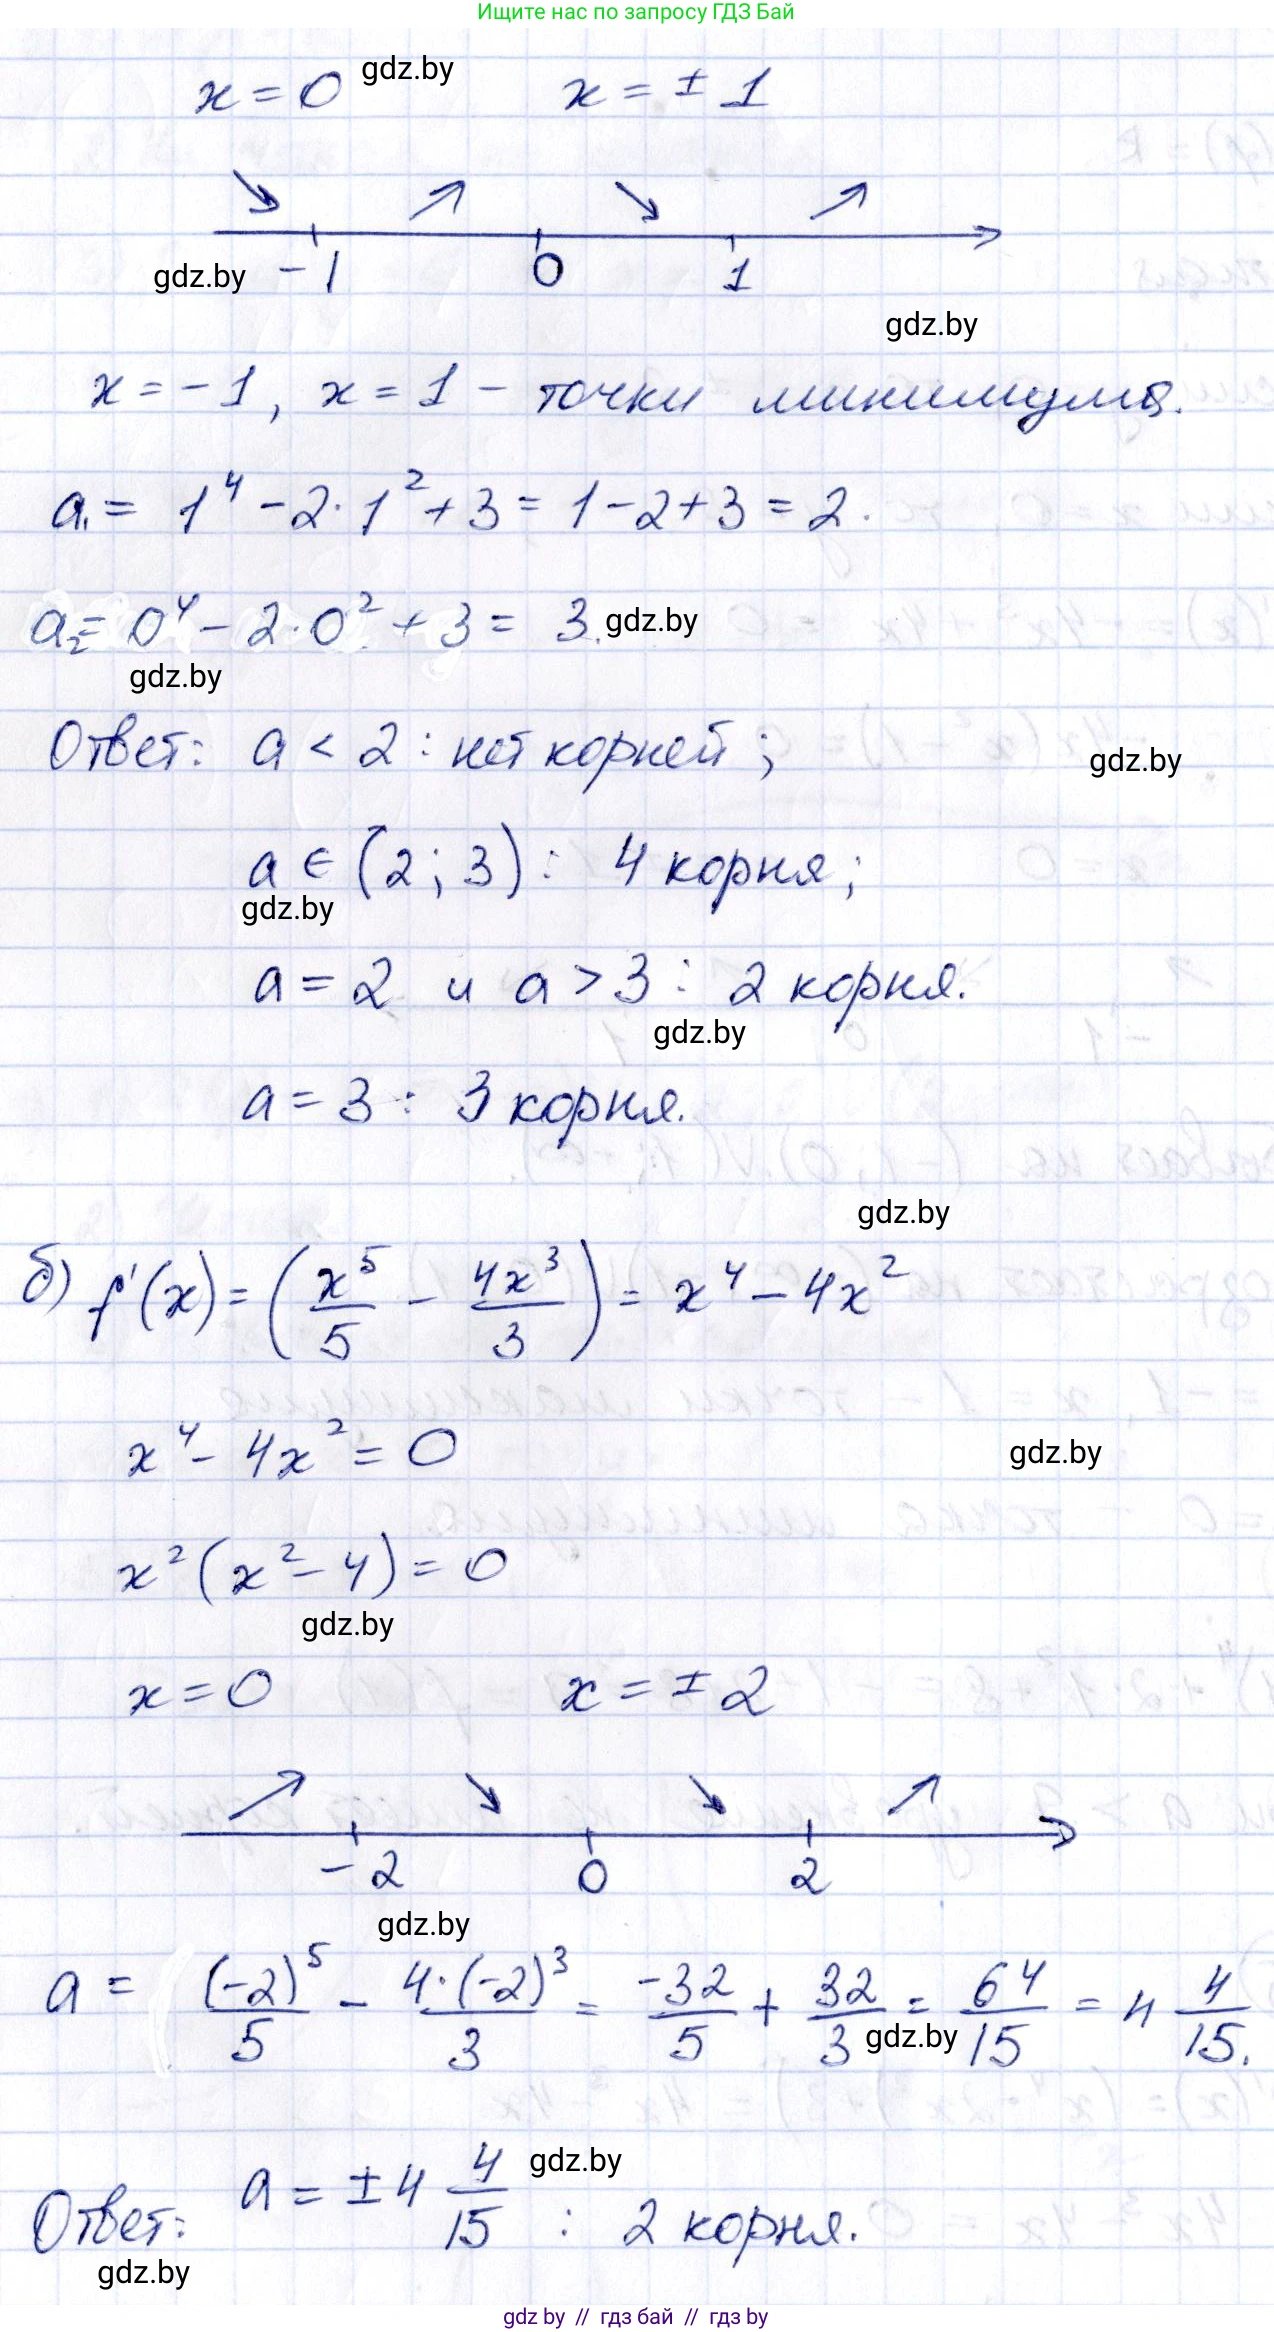 Ищите нас по запросу ГДЗ Бай
x = 0 gdz.by x = ± 1
-1 0 1
gdz.by
gdz.by
x = -1, x = 1 - точки минимума.
a₁ = 1⁴ - 2·1² + 3 = 1 - 2 + 3 = 2.
a₂ = 0⁴ - 2·0² + 3 = 3. gdz.by
gdz.by
Ответ: a < 2 : нет корней ;
gdz.by
a ∈ (2; 3) : 4 корня ;
gdz.by
a = 2 и a > 3 : 2 корня.
gdz.by
a = 3 : 3 корня.
gdz.by
б) f'(x) = (x⁵/5 - 4x³/3) = x⁴ - 4x²
x⁴ - 4x² = 0
gdz.by
x² (x² - 4) = 0
gdz.by
x = 0 x = ± 2
-2 0 2
gdz.by
a = (-2)⁵/5 - 4·(-2)³/3 = -32/5 + 32/3 = 64/15 = 4 4/15.
gdz.by
Ответ: a = ± 4 4/15 : 2 корня.
gdz.by
gdz.by
gdz by // гдз бай // гдз by